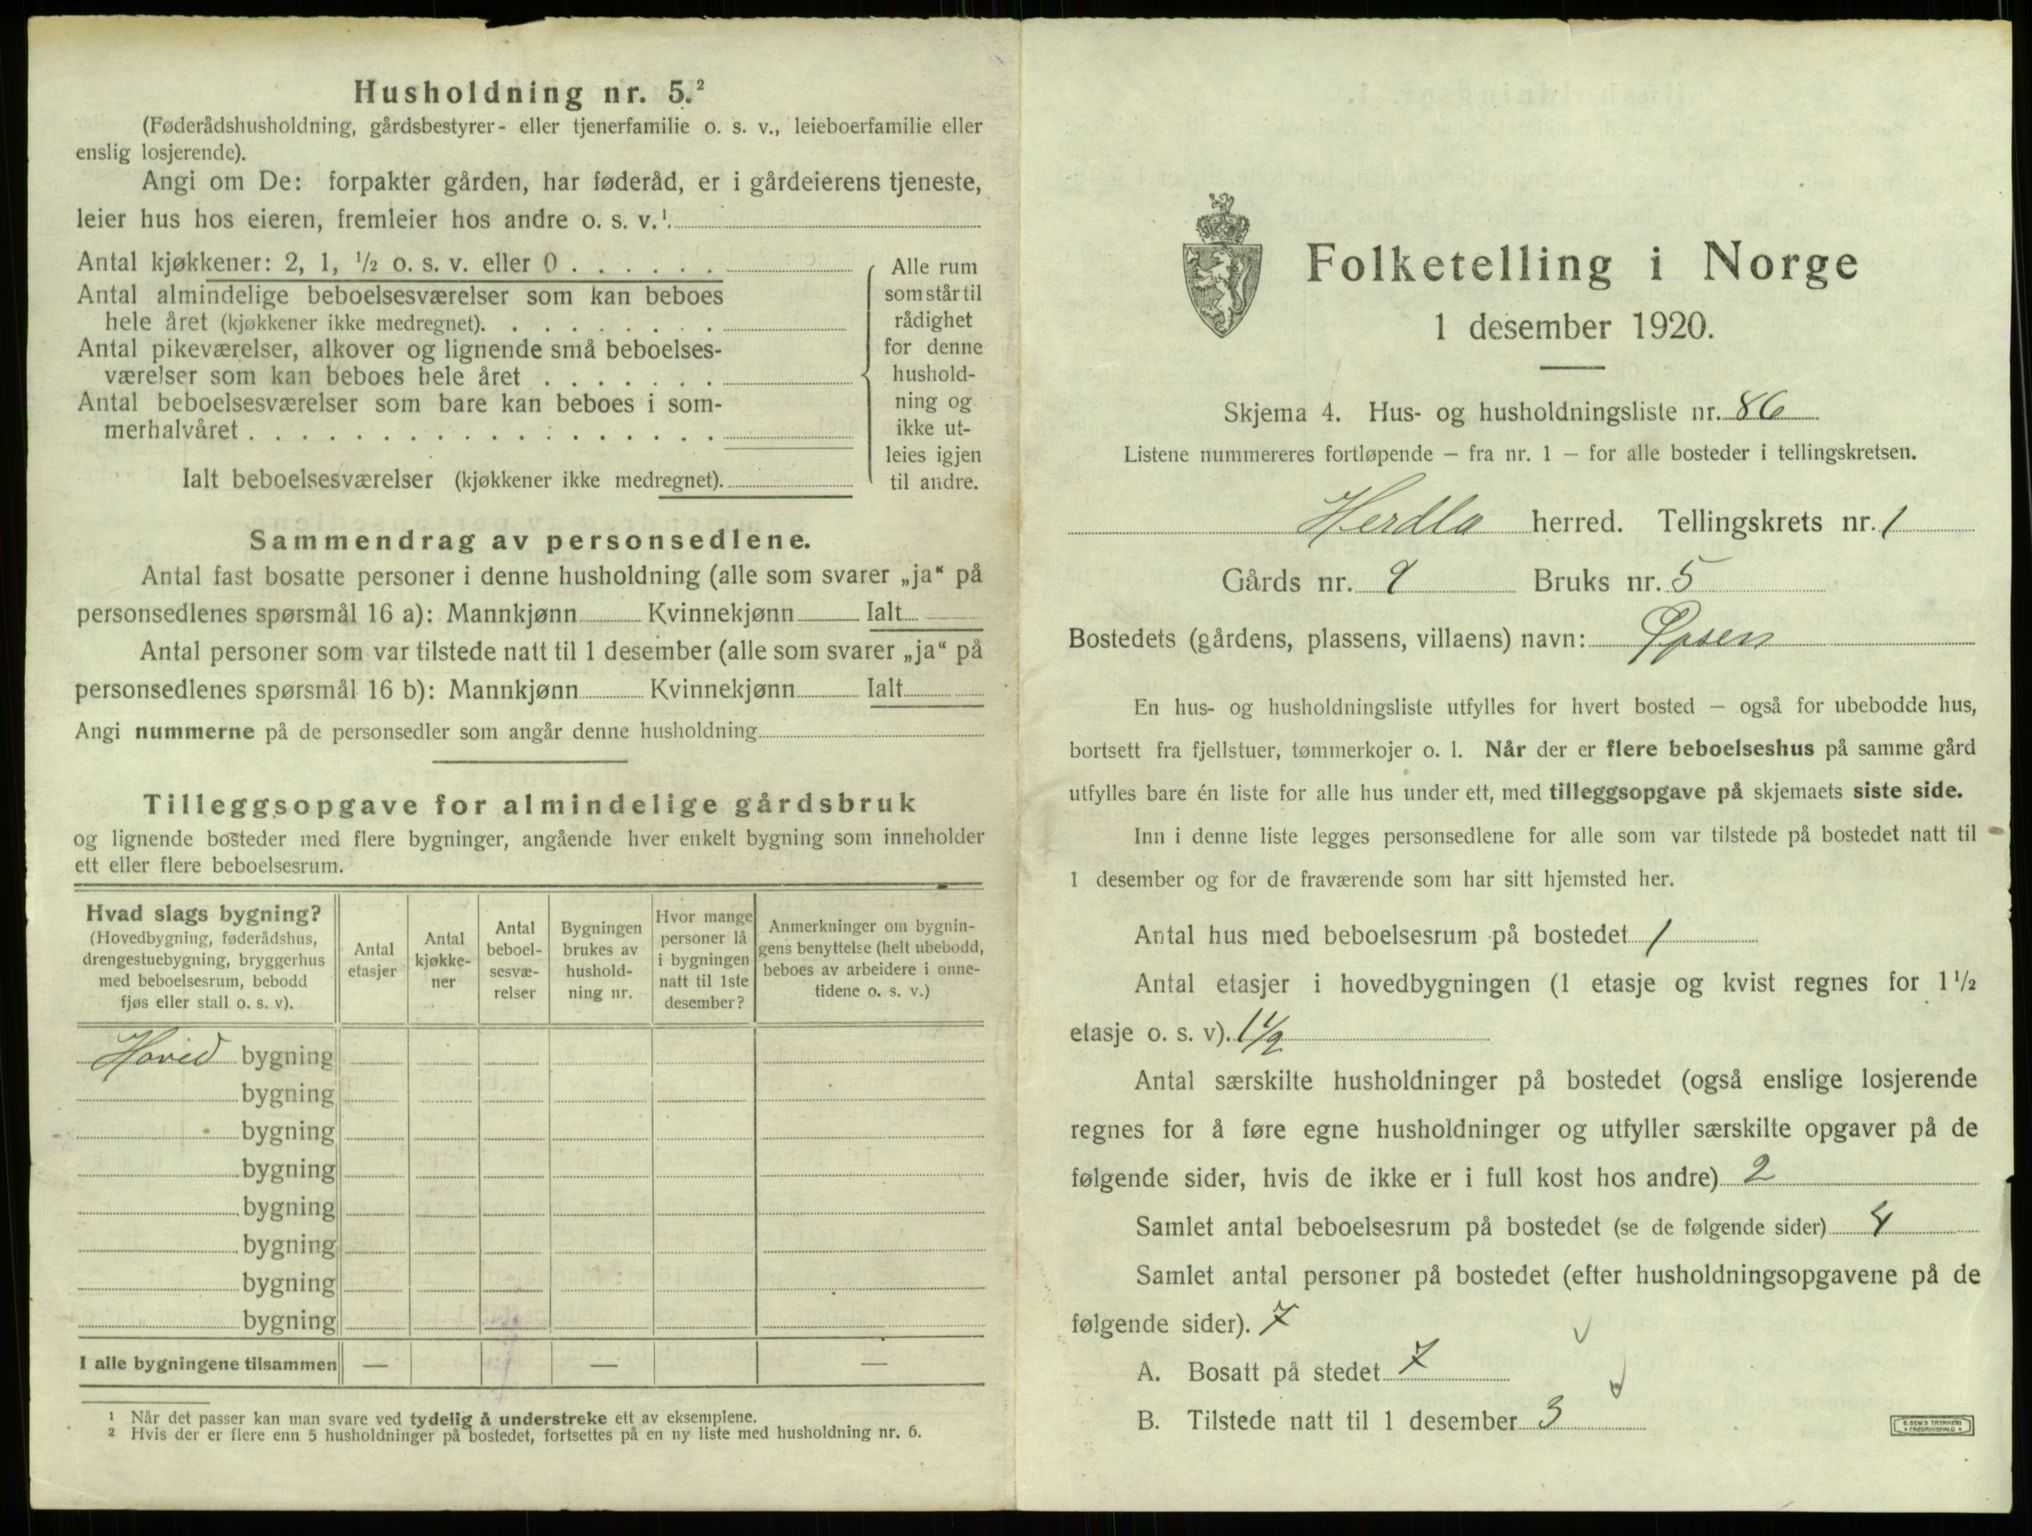 Husholdning nr. 5.²
(Føderådshusholdning, gårdsbestyrer- eller tjenerfamilie o. s. v., leieboerfamilie eller
enslig losjerende).
Angi om De: forpakter gården, har føderåd, er i gårdeierens tjeneste,
leier hus hos eieren, fremleier hos andre o. s. v.¹.
Antal kjøkkener: 2, 1, ½ o. s. v. eller 0 . . . . . .
Antal almindelige beboelsesværelser som kan beboes
hele året (kjøkkener ikke medregnet). . . . . . . . .
Antal pikeværelser, alkover og lignende små beboelses-
værelser som kan beboes hele året . . . . . . .
Antal beboelsesværelser som bare kan beboes i som-
merhalvåret . . . . . . . . . . . . . . . . . .
Ialt beboelsesværelser (kjøkkener ikke medregnet).
Alle rum
som står til
rådighet
for denne
hushold-
ning og
ikke ut-
leies igjen
til andre.
Sammendrag av personsedlene.
Antal fast bosatte personer i denne husholdning (alle som svarer „ja“ på
personsedlenes spørsmål 16 a): Mannkjønn Kvinnekjønn Ialt
Antal personer som var tilstede natt til 1 desember (alle som svarer „ja“ på
personsedlenes spørsmål 16 b): Mannkjønn Kvinnekjønn Ialt
Angi nummerne på de personsedler som angår denne husholdning
Tilleggsopgave for almindelige gårdsbruk
og lignende bosteder med flere bygninger, angående hver enkelt bygning som inneholder
ett eller flere beboelsesrum.
Hvad slags bygning?
(Hovedbygning, føderådshus,
drengestuebygning, bryggerhus
med beboelsesrum, bebodd
fjøs eller stall o. s. v).
Antal
etasjer
Antal
kjøkke-
ner
Antal
beboel-
sesvæ-
relser
Bygningen
brukes av
hushold-
ning nr.
Hvor mange
personer lå
i bygningen
natt til 1ste
desember?
Anmerkninger om bygnin-
gens benyttelse (helt ubebodd,
beboes av arbeidere i onne-
tidene o. s. v.)
Hoved bygning
bygning
bygning
bygning
bygning
bygning
bygning
bygning
I alle bygningene tilsammen — — —
¹ Når det passer kan man svare ved tydelig å understreke ett av eksemplene.
² Hvis der er flere enn 5 husholdninger på bostedet, fortsettes på en ny liste med husholdning nr. 6.
Folketelling i Norge
1 desember 1920.
Skjema 4. Hus- og husholdningsliste nr. 86
Listene nummereres fortløpende – fra nr. 1 – for alle bosteder i tellingskretsen.
Herdla herred. Tellingskrets nr. 1
Gårds nr. 9 Bruks nr. 5
Bostedets (gårdens, plassens, villaens) navn:
En hus- og husholdningsliste utfylles for hvert bosted – også for ubebodde hus,
bortsett fra fjellstuer, tømmerkojer o. l. Når der er flere beboelseshus på samme gård
utfylles bare én liste for alle hus under ett, med tilleggsopgave på skjemaets siste side.
Inn i denne liste legges personsedlene for alle som var tilstede på bostedet natt til
1 desember og for de fraværende som har sitt hjemsted her.
Antal hus med beboelsesrum på bostedet 1
Antal etasjer i hovedbygningen (1 etasje og kvist regnes for 1½
etasje o. s. v). 1½
Antal særskilte husholdninger på bostedet (også enslige losjerende
regnes for å føre egne husholdninger og utfyller særskilte opgaver på de
følgende sider, hvis de ikke er i full kost hos andre) 2
Samlet antal beboelsesrum på bostedet (se de følgende sider) 4
Samlet antal personer på bostedet (efter husholdningsopgavene på de
følgende sider). 7
A. Bosatt på stedet 7
B. Tilstede natt til 1 desember 3